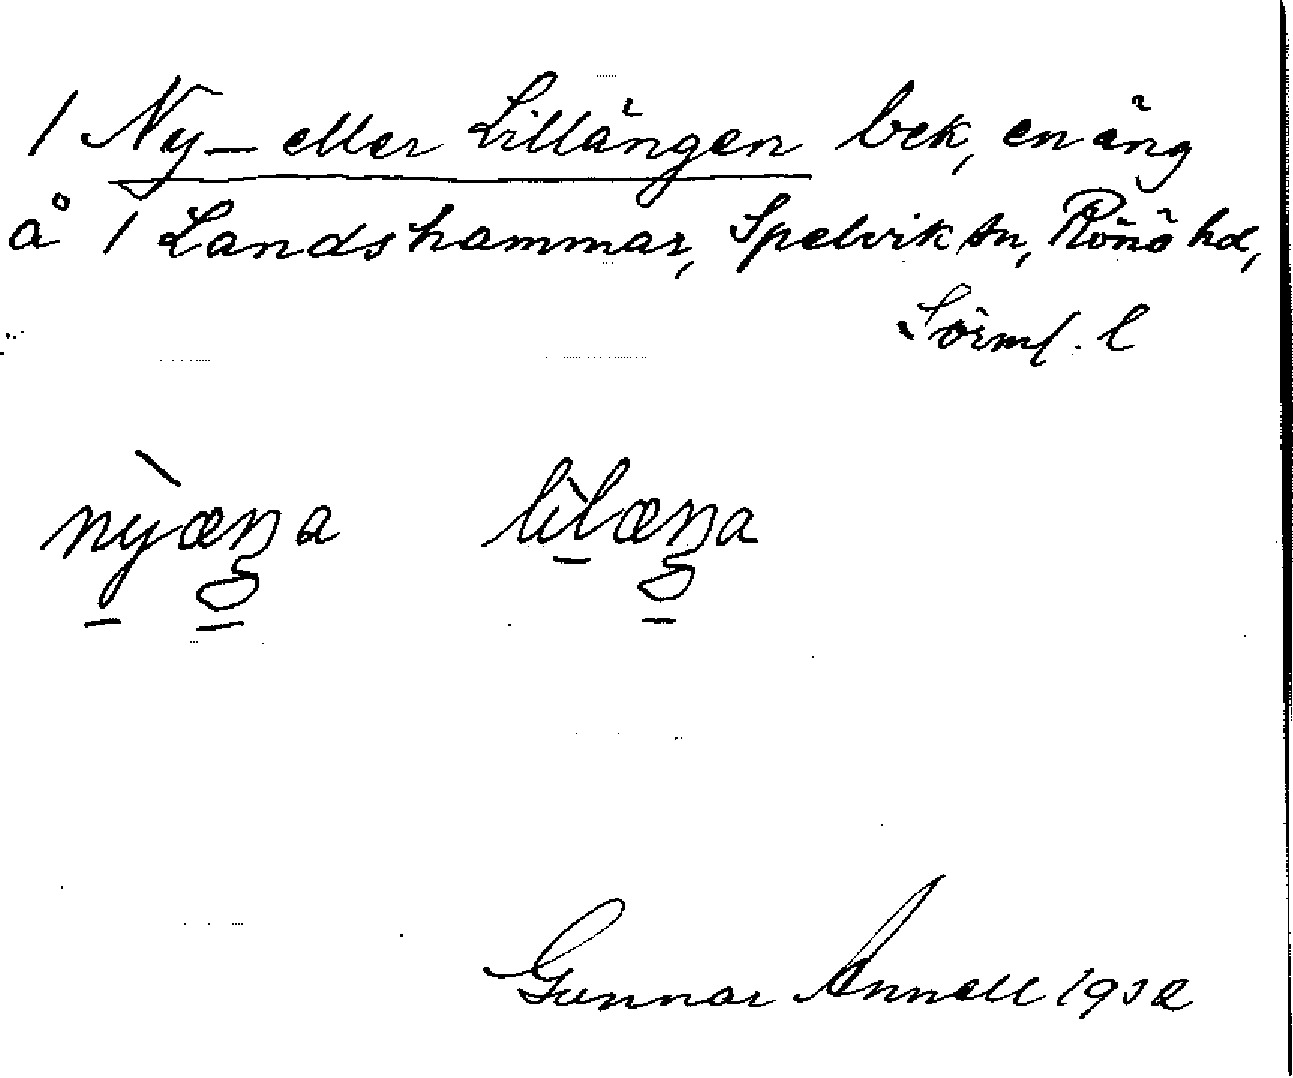 / Ny- eller Lillängen bek, en äng
å / Landshammar, Spelvik sn, Rönö hd,
Sörml. l
nỳæŋa lìlæŋa
Gunnar Annell 1932